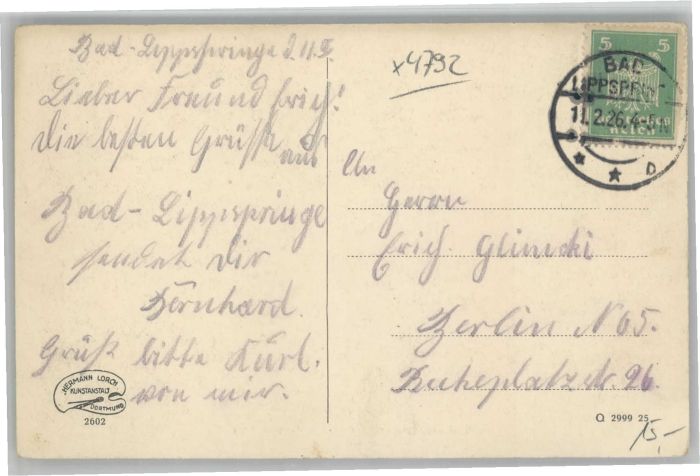 Bad-Lippspringe
Lieber Freund Erich!
Die besten Grüße
aus
Bad-Lippspringe
sendet Dir
Bernhard.
Grüß bitte Kurt.
von mir.
HERMANN LORCH
KUNSTANSTALT
DORTMUND
2602
x4792
5 5
BAD
LIPPSPRINGE
11.2.26.4-5N
Reich
* * D
An
Herrn
Erich Glinski
Berlin N 65.
26.
Q 2999 25
15,-